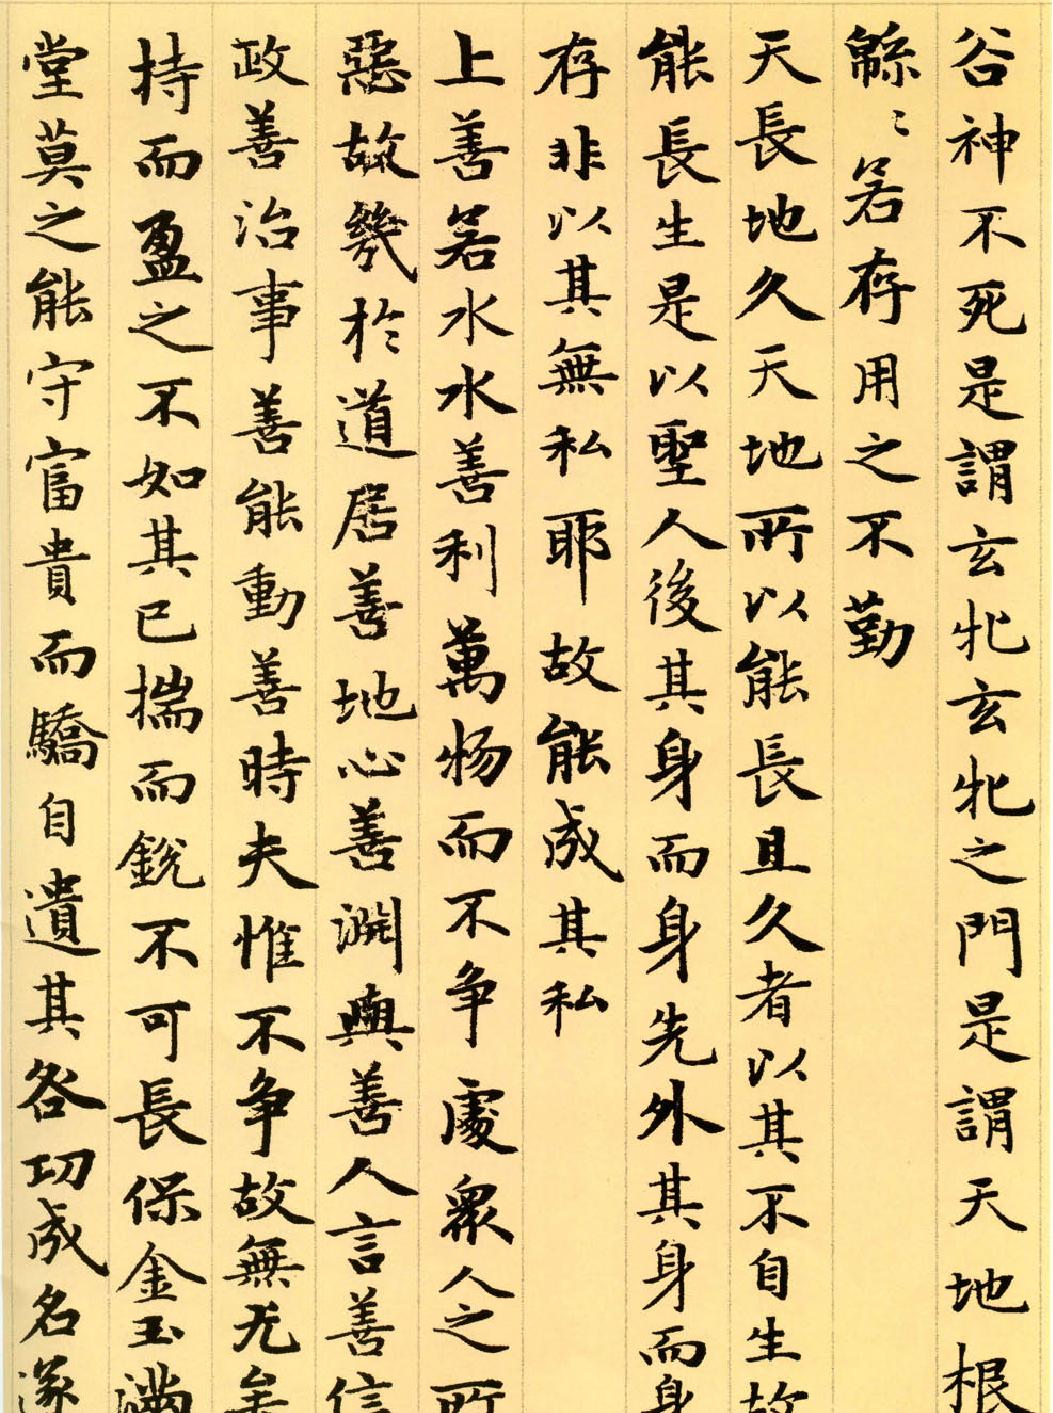 谷神不死是謂玄牝玄牝之門是謂天地根
緜〻若存用之不勤
天長地久天地所以能長且久者以其不自生故
能長生是以聖人後其身而身先外其身而身
存非以其無私耶故能成其私
上善若水水善利萬物而不争處衆人之所
惡故幾於道居善地心善淵與善人言善信
政善治事善能動善時夫惟不争故無尤矣
持而盈之不如其已揣而銳不可長保金玉滿
堂莫之能守富貴而驕自遺其咎功成名遂